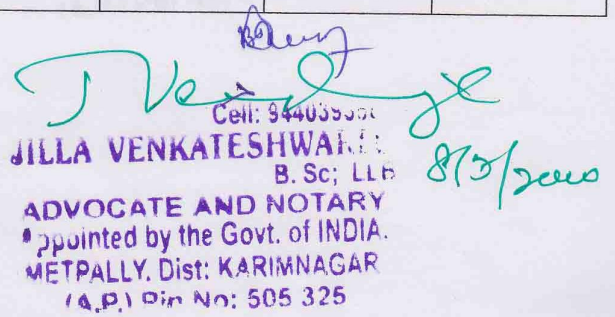 Cell:
JILLA VENKATESHWAR
B. Sc; LLB
ADVOCATE AND NOTARY
Appointed by the Govt. of INDIA.
METPALLY. Dist: KARIMNAGAR
(A.P.) Pin No: 505 325